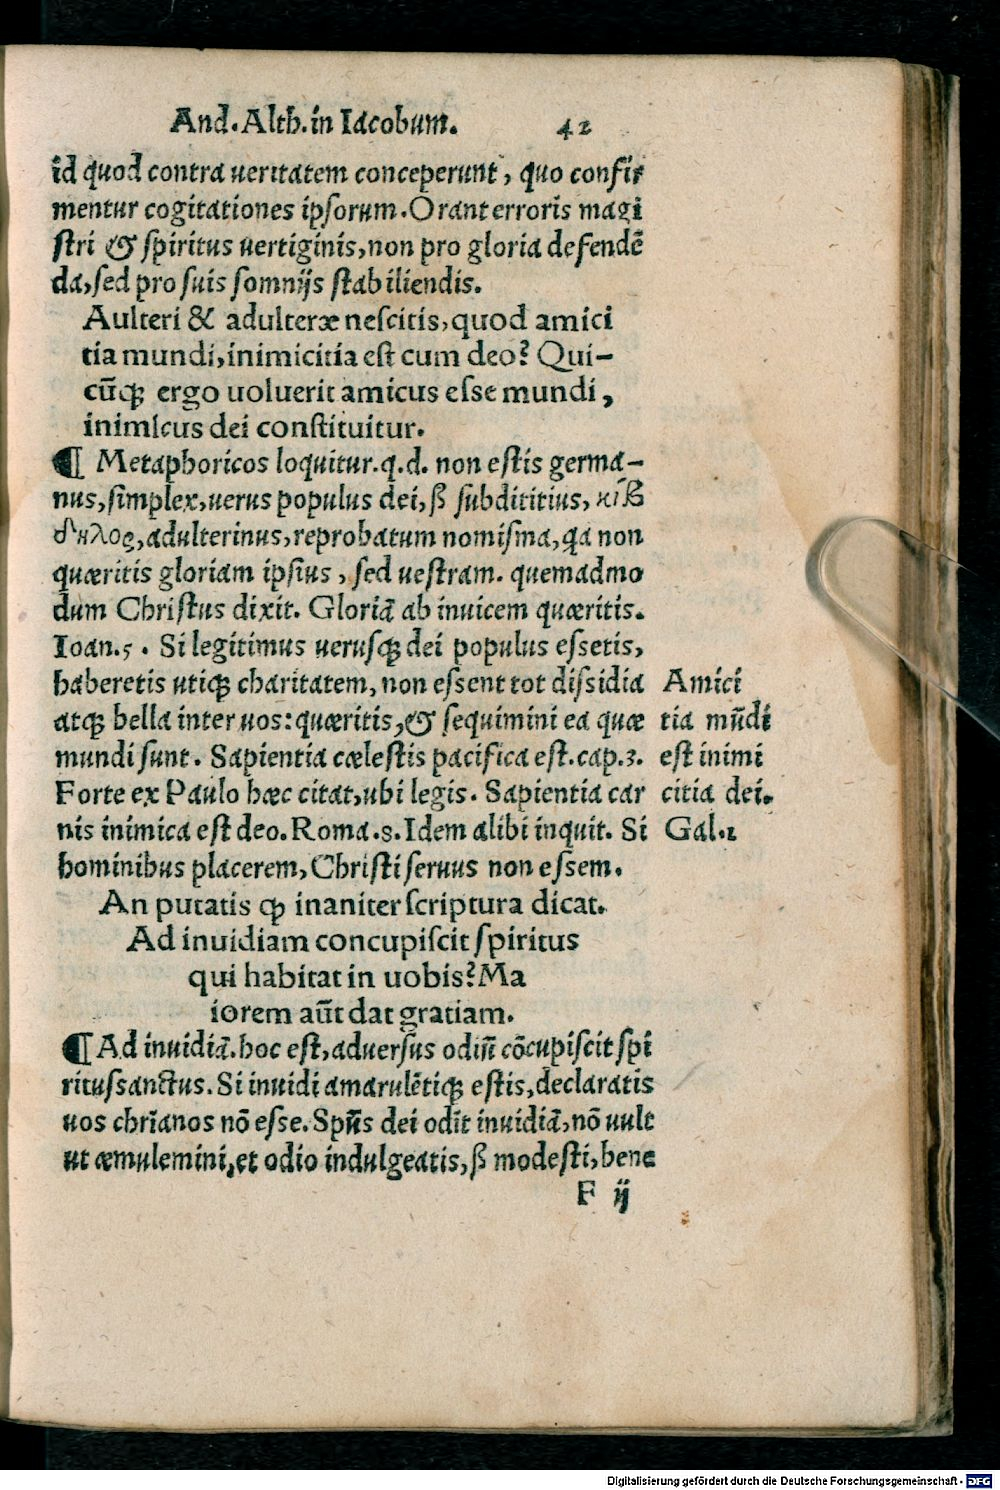 And. Alth. in Iacobum. 42
id quod contra ueritatem conceperunt, quo confir
mentur cogitationes ipsorum. Orant erroris magi
stri & spiritus uertiginis, non pro gloria defendē
da, sed pro suis somnijs stabiliendis.
Aulteri & adulteræ nescitis, quod amici
tia mundi, inimicitia est cum deo? Qui-
cūqꝫ ergo uoluerit amicus esse mundi,
inimicus dei constituitur.
¶ Metaphoricos loquitur. q. d. non estis germa-
nus, simplex, uerus populus dei, ß subdititius, κίβ
δηλος, adulterinus, reprobatum nomisma, qa non
quæritis gloriam ipsius, sed uestram. quemadmo
dum Christus dixit. Gloriā ab inuicem quæritis.
Ioan. 5. Si legitimus uerusqꝫ dei populus essetis,
haberetis utiqꝫ charitatem, non essent tot dissidia
atqꝫ bella inter uos: quæritis, & sequimini ea quæ
mundi sunt. Sapientia cælestis pacifica est. cap. 3.
Forte ex Paulo hæc citat, ubi legis. Sapientia car
nis inimica est deo. Roma. 8. Idem alibi inquit. Si
hominibus placerem, Christi seruus non essem.
Amici
tia mūdi
est inimi
citia dei.
Gal. 1
An putatis ꝙ inaniter scriptura dicat.
Ad inuidiam concupiscit spiritus
qui habitat in uobis? Ma
iorem aūt dat gratiam.
¶ Ad inuidiā. hoc est, aduersus odiū cōcupiscit spi
ritussanctus. Si inuidi amarulētiqꝫ estis, declaratis
uos chrīanos nō esse. Spūs dei odit inuidiā, nō uult
ut æmulemini, et odio indulgeatis, ß modesti, bene
F ij
Digitalisierung gefördert durch die Deutsche Forschungsgemeinschaft - DFG